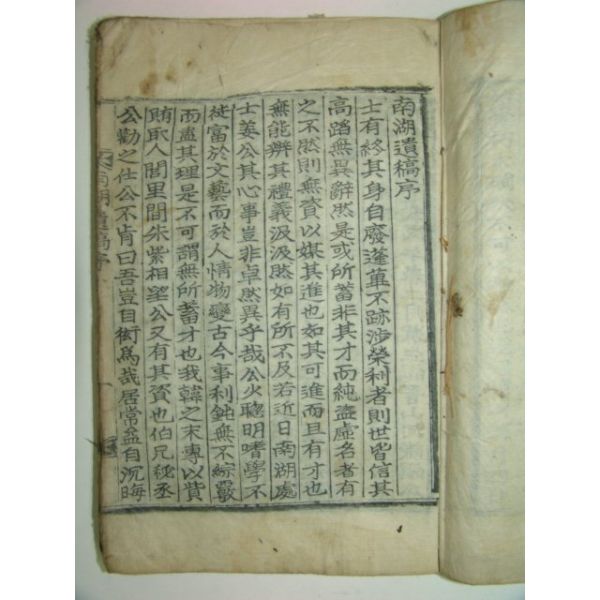 南湖遺稿序
士有終其身自廢蓬蓽不跡涉榮利者則世皆信其
高蹈無異辭然是或所蓄非其才而純盜虛名者有
之不然則無資以媒其進也如其可進而且有才也
無能辨其禮義汲汲然如有所不及若近日南湖處
士姜公其心事豈非卓然異乎哉公少聰明嗜學不
徒富於文藝而於人情物變古今事利鈍無不綜覈
而盡其理是不可謂無所蓄才也我韓之末專以貲
賄取人閭里間朱紫相望公又有其資也伯兄丞
公勸之仕公不肯曰吾豈自衒爲哉居常益自沉晦
南湖遺稿序